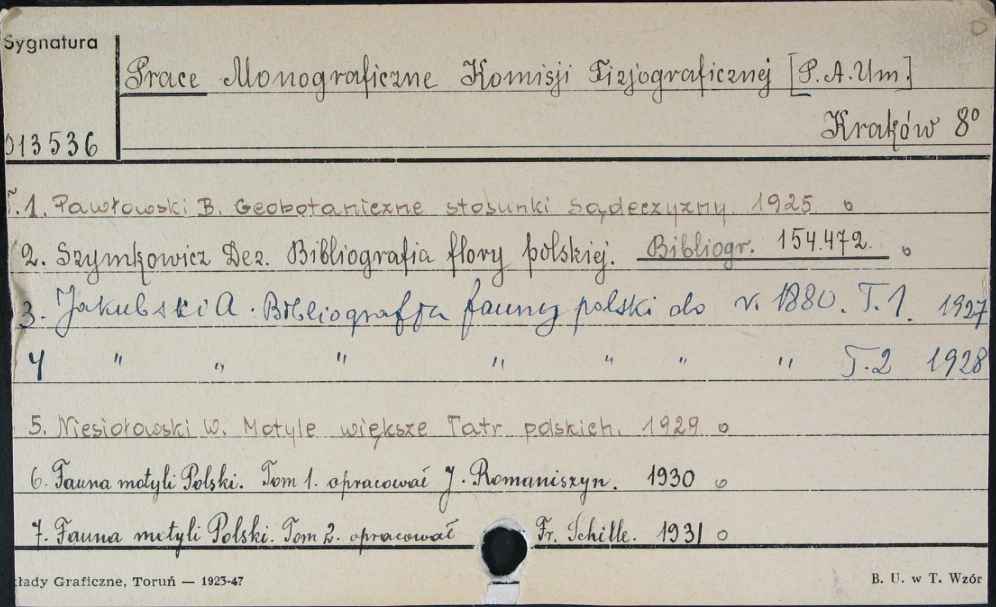 Sygnatura
Prace Monograficzne Komisji Fizjograficznej [P.A.Um.]
Kraków 8°
013536
T.1. Pawłowski B. Geobotaniczne stosunki Sądeczyzny. 1925 o
2. Szymkowicz Dez. Bibliografia flory polskiej. Bibliogr. 154.472. o
3. Jakubski A. Bibliografja fauny polski do r. 1880. T.1. 1927
4 " " " " " " " T.2 1928
5. Niesiołowski W. Motyle większe Tatr polskich. 1929 o
6. Fauna motyli Polski. Tom 1. opracował J. Romaniszyn. 1930 o
7. Fauna motyli Polski. Tom 2. opracował Fr. Schille. 1931 o
kłady Graficzne, Toruń — 1925-47
B. U. w T. Wzór